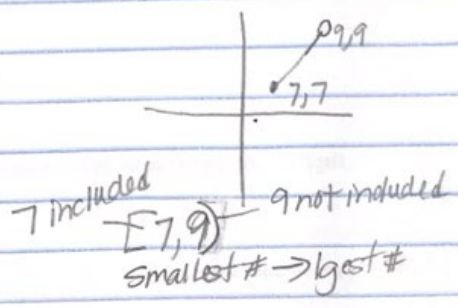 9,9
7,7
7 included
9 not included
[7,9)
Smallest # → lgest #